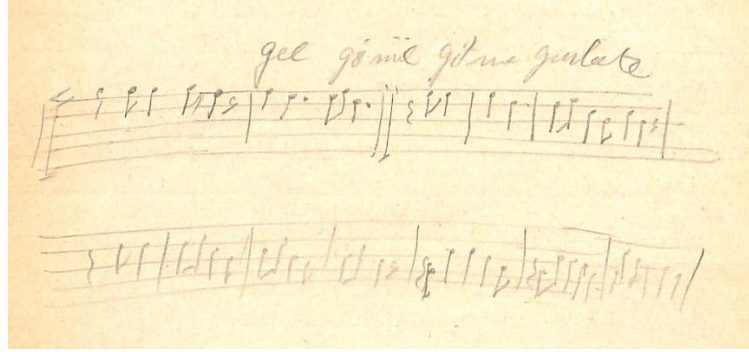 gel gönül gitme gurbete